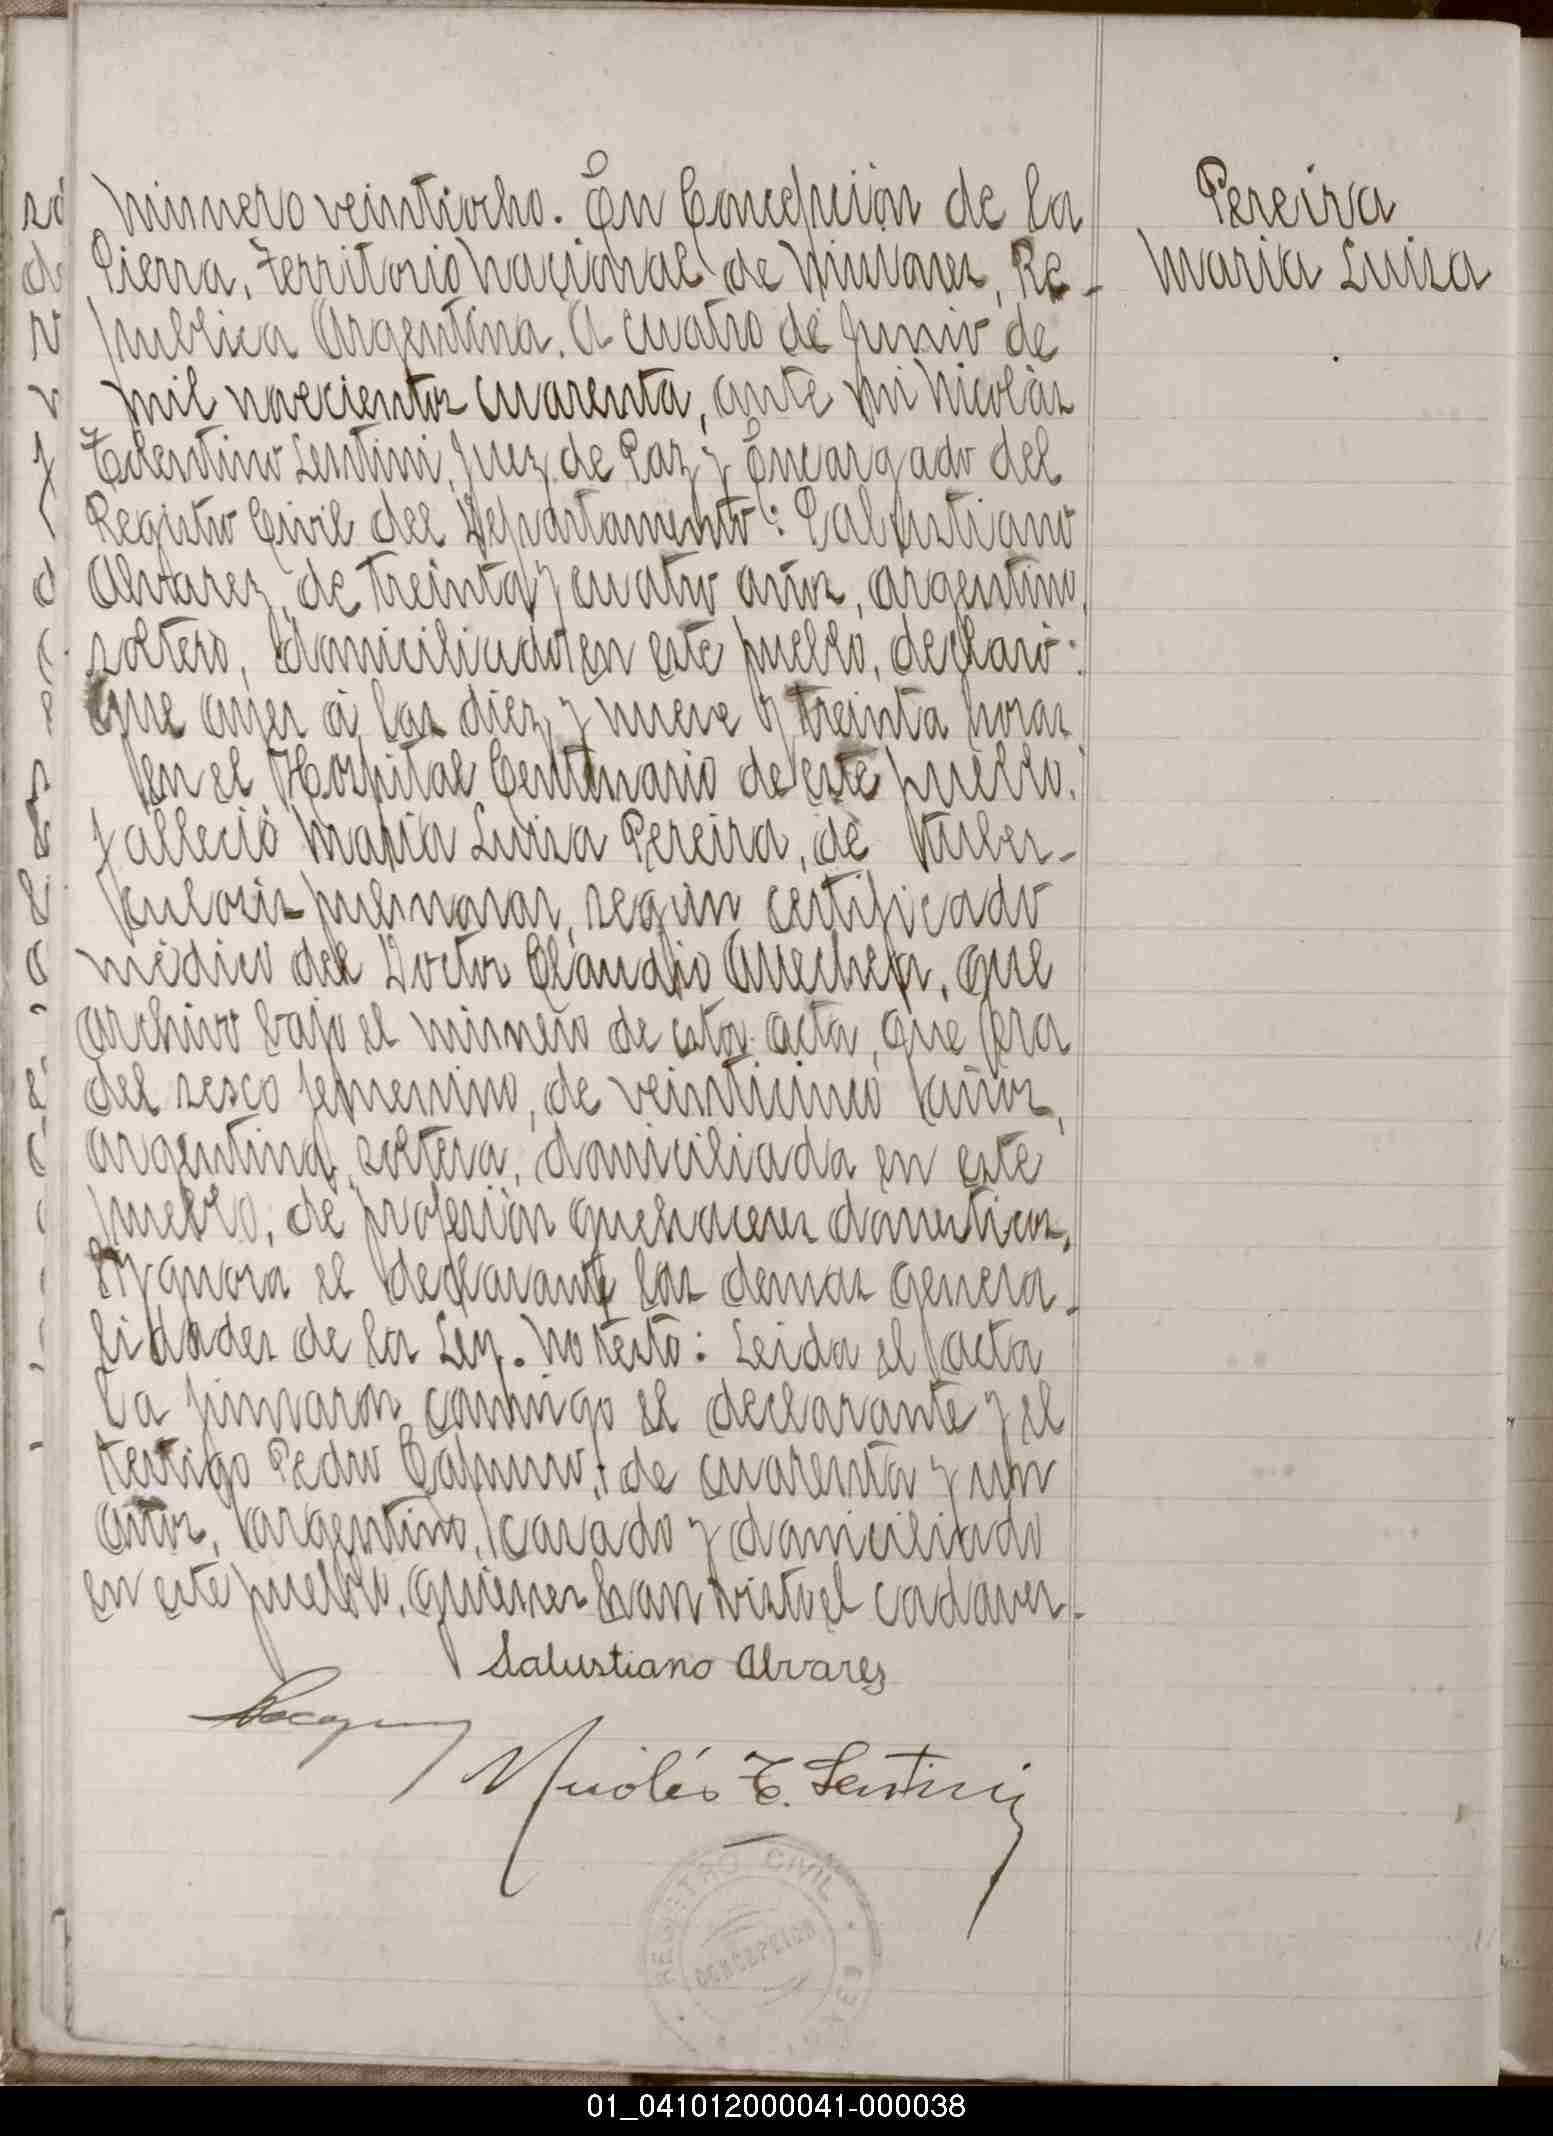 Numero veintiocho. En Concepción de la
Sierra, Territorio Nacional de Misiones, Re-
publica Argentina. A cuatro de Junio de
mil novecientos cuarenta, ante mi Nicolás
Tolentino Lentini, Juez de Paz y Encargado del
Registro Civil del Departamento: Salustiano
Alvarez, de treinta y cuatro años, argentino,
soltero, domiciliado en este pueblo, declaró:
Que ayer á las diez y nueve y treinta horas
en el Hospital Centenario de este pueblo,
falleció Maria Luisa Pereira, de tuber-
culosis pulmonar, según certificado
médico del Doctor Claudio, que
archivo bajo el número de esta acta, que era
del sexo femenino, de veinticinco años,
argentina, soltera, domiciliada en este
pueblo, de profesión quehaceres domesticos,
Ignora el declarante las demas genera-
lidades de la Ley. No testó: Leida el acta
la firmaron conmigo el declarante y el
testigo Pedro, de cuarenta y un
años, argentino, casado y domiciliado
en este pueblo, quienes han visto el cadaver.
Salustiano Alvares
Nicolás T. Lentini
REGISTRO CIVIL
CONCEPCION
Pereira
Maria Luisa
01_041012000041-000038